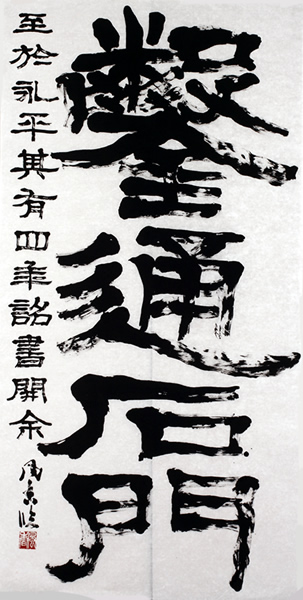 鑿通石門
至於永平其有四年詔書開余
周臨